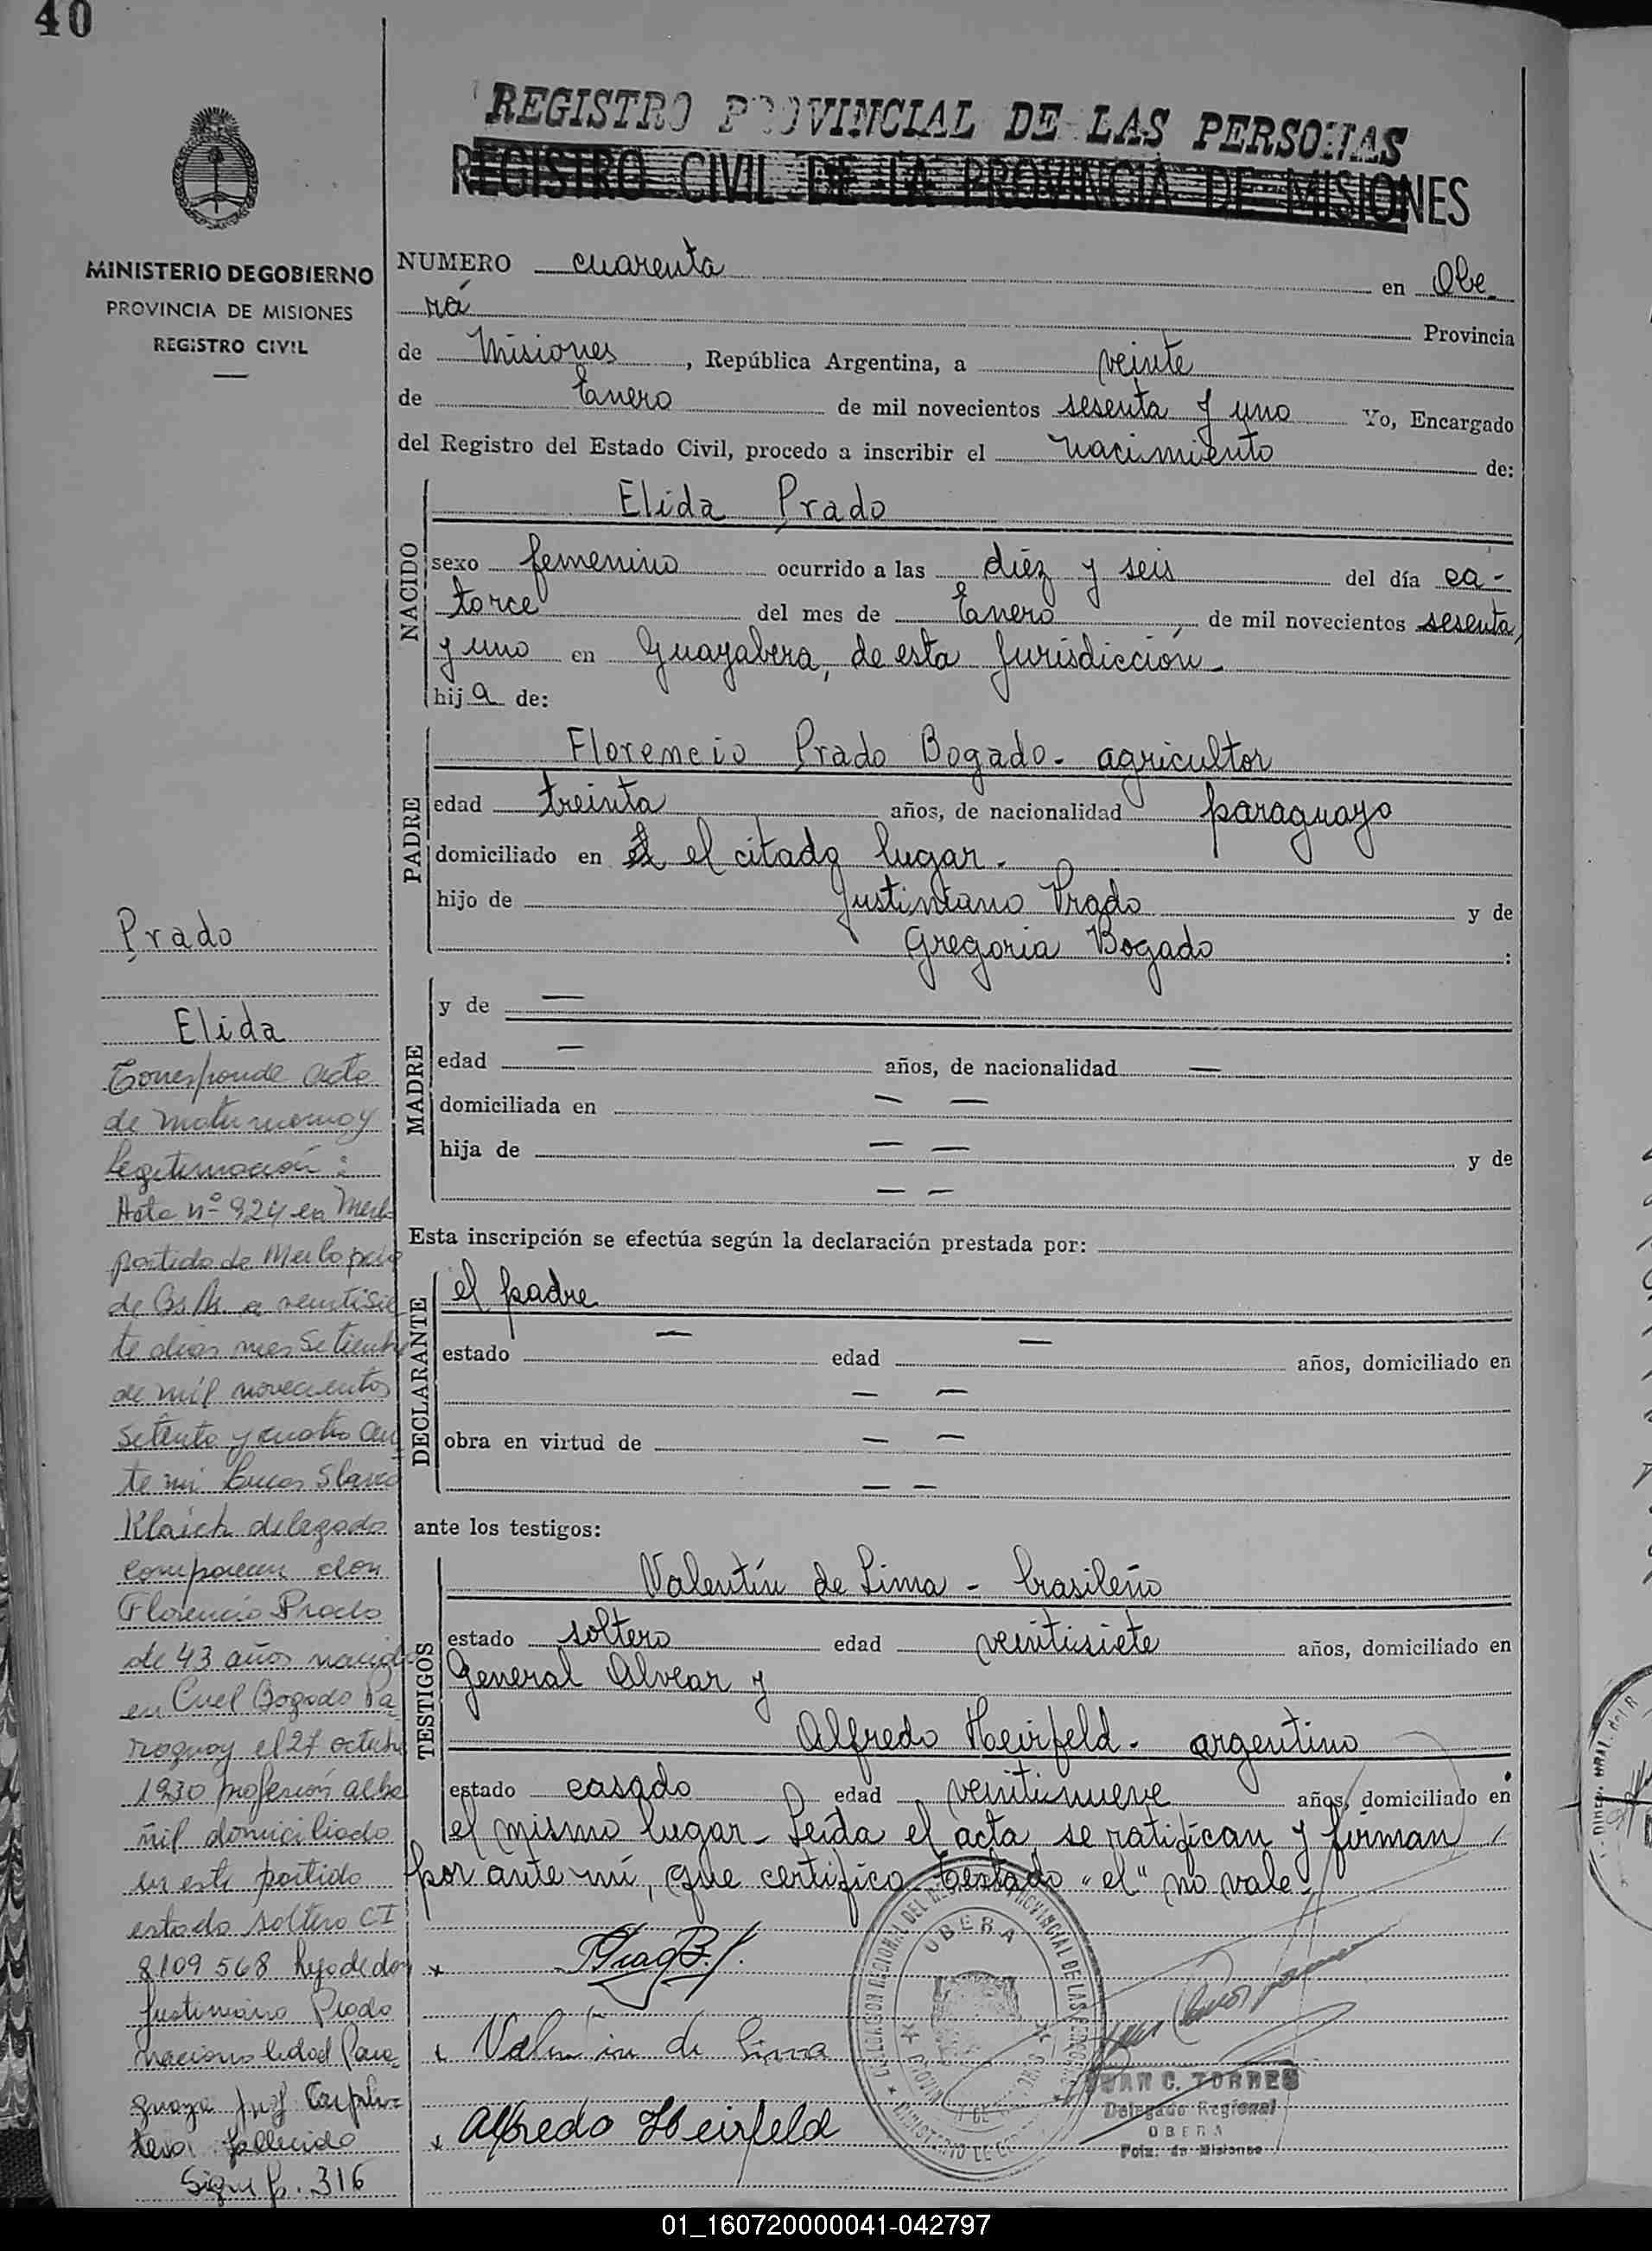 40
REGISTRO PROVINCIAL DE LAS PERSONAS
REGISTRO CIVIL DE LA PROVINCIA DE MISIONES
MINISTERIO DE GOBIERNO
PROVINCIA DE MISIONES
REGISTRO CIVIL
NUMERO cuarenta en Obe
rá Provincia
de Misiones, República Argentina, a veinte
de Enero de mil novecientos sesenta y uno Yo, Encargado
del Registro del Estado Civil, procedo a inscribir el nacimiento de:
NACIDO
Elida Prado
sexo femenino ocurrido a las diéz y seis del día ca-
torce del mes de Enero de mil novecientos sesenta
y uno en Guayabera, de esta Jurisdicción-
hija de:
PADRE
Florencio Prado Bogado- agricultor
edad treinta años, de nacionalidad paraguayo
domiciliado en el el citado lugar.
hijo de Justiniano Prado y de
Gregoria Bogado :
MADRE
y de —
edad — años, de nacionalidad —
domiciliada en — —
hija de — — y de
— —
Esta inscripción se efectúa según la declaración prestada por:
DECLARANTE
el padre
estado — edad — años, domiciliado en
— —
obra en virtud de — —
— —
ante los testigos:
TESTIGOS
Valentín de Lima - brasileño
estado soltero edad veintisiete años, domiciliado en
General Alvear y
Alfredo Heirfeld- argentino
estado casado edad veintinueve años, domiciliado en
el mismo lugar- Leída el acta se ratifican y firman
por ante mí, que certifico- Testado "el" no vale-
Valentin de Lima
Alfredo Heirfeld
OBERA
JUAN C. TORRES
Delegado Regional
OBERA
Pcia. de Misiones
Prado
Elida
Corresponde acta
de matrimonio y
legitimación:
Acta nº 924 en Merlo
partido de Merlo pcia
de Bs As. a veintisie
te dias mes Setiembre
de mil novecientos
setenta y cuatro an
te mi Lucas
Klaich delegado
comparecen don
Florencio Prado
de 43 años nacido
en Cnel Bogado Pa
raguay el 27 octubre
1930 profesión alba
ñil domiciliado
en este partido
estado soltero CI
8109568 hijo de don
Justiniano Prado
nacionalidad Para-
guaya prof Carpin-
tero fallecido
Sigue f. 316
01_160720000041-042797